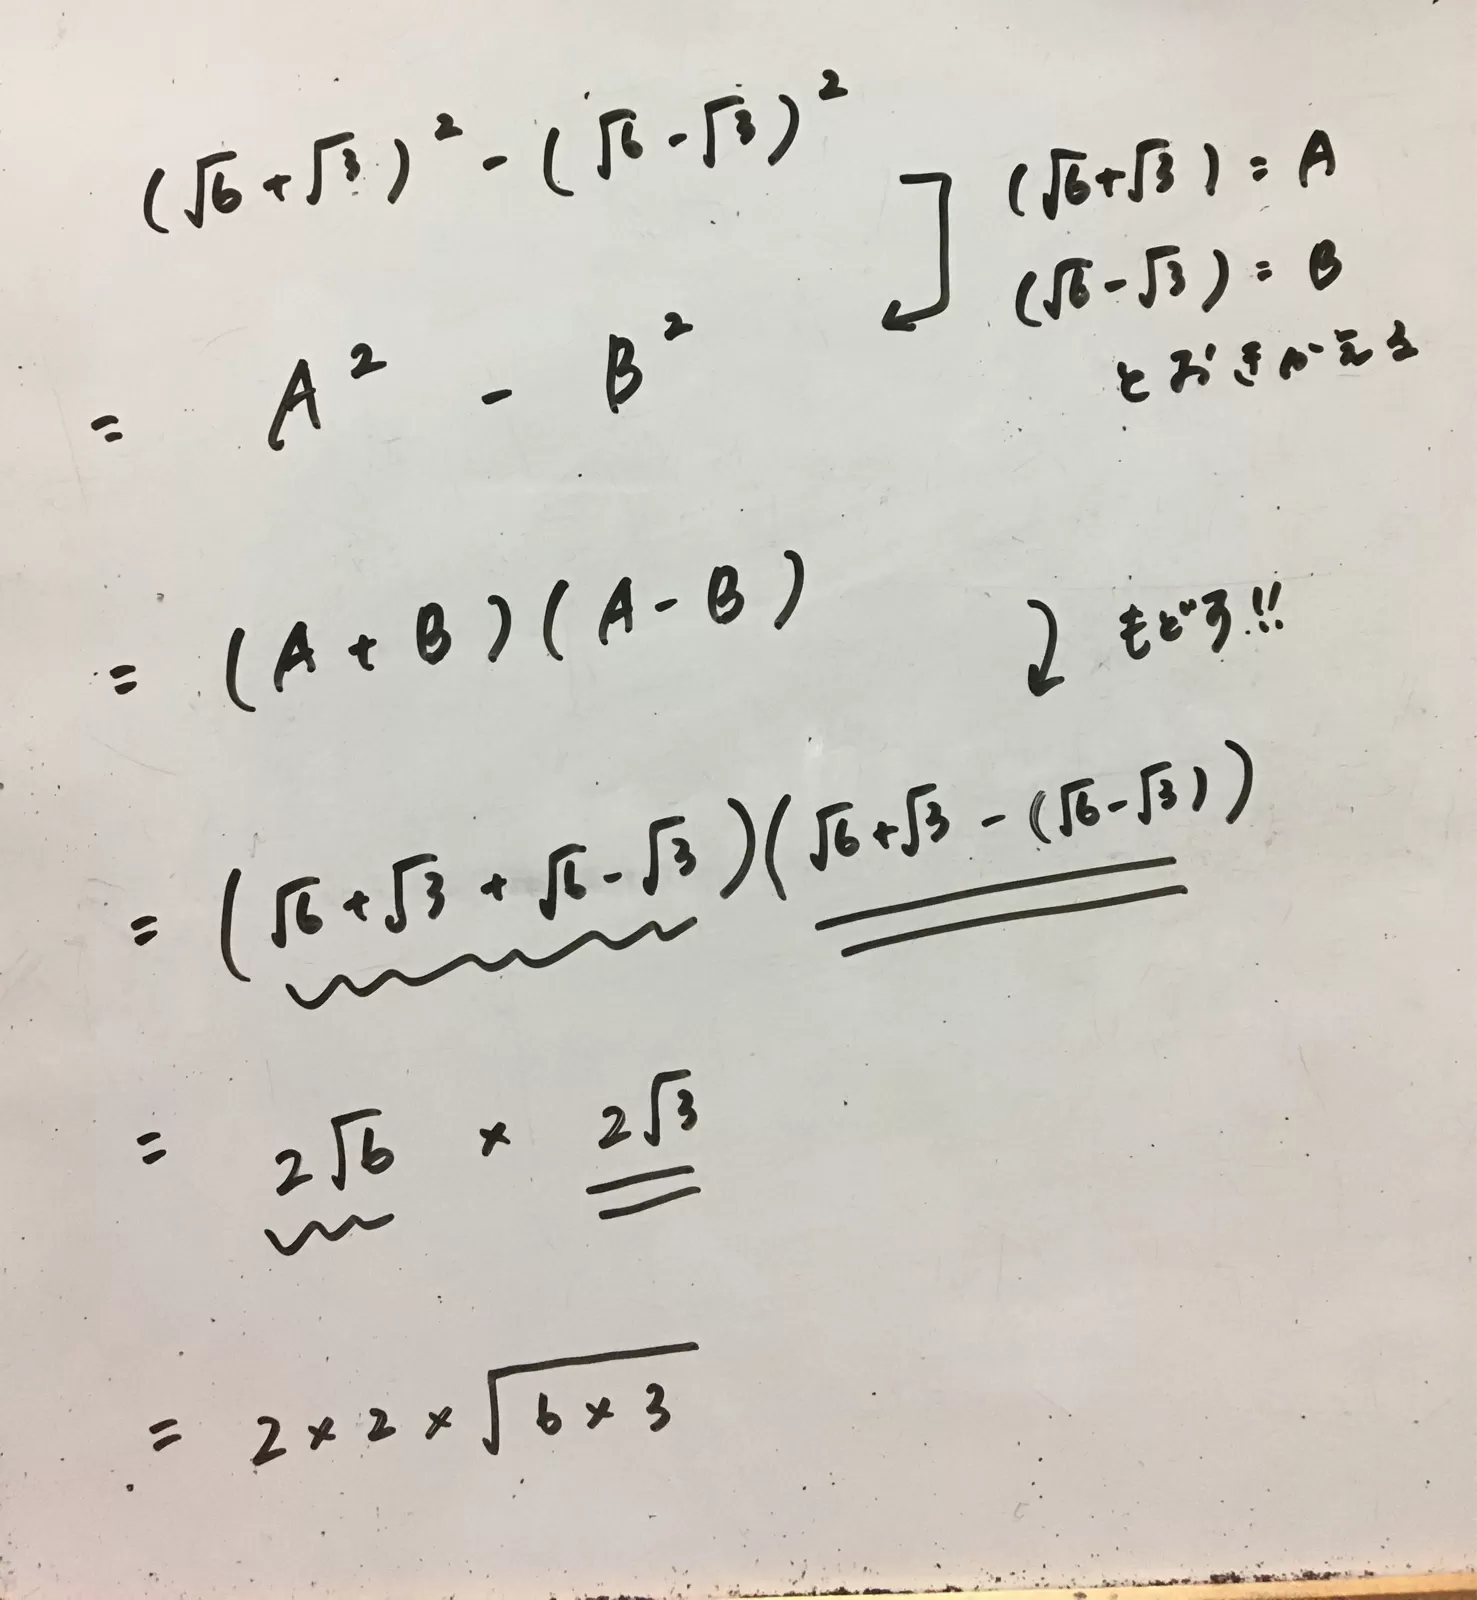 (√6+√3)² - (√6-√3)²
(√6+√3) = A
(√6-√3) = B
とおきかえる
= A² - B²
= (A+B)(A-B)
もどす!!
= (√6+√3+√6-√3)(√6+√3-(√6-√3))
= 2√6 × 2√3
= 2×2×√6×3